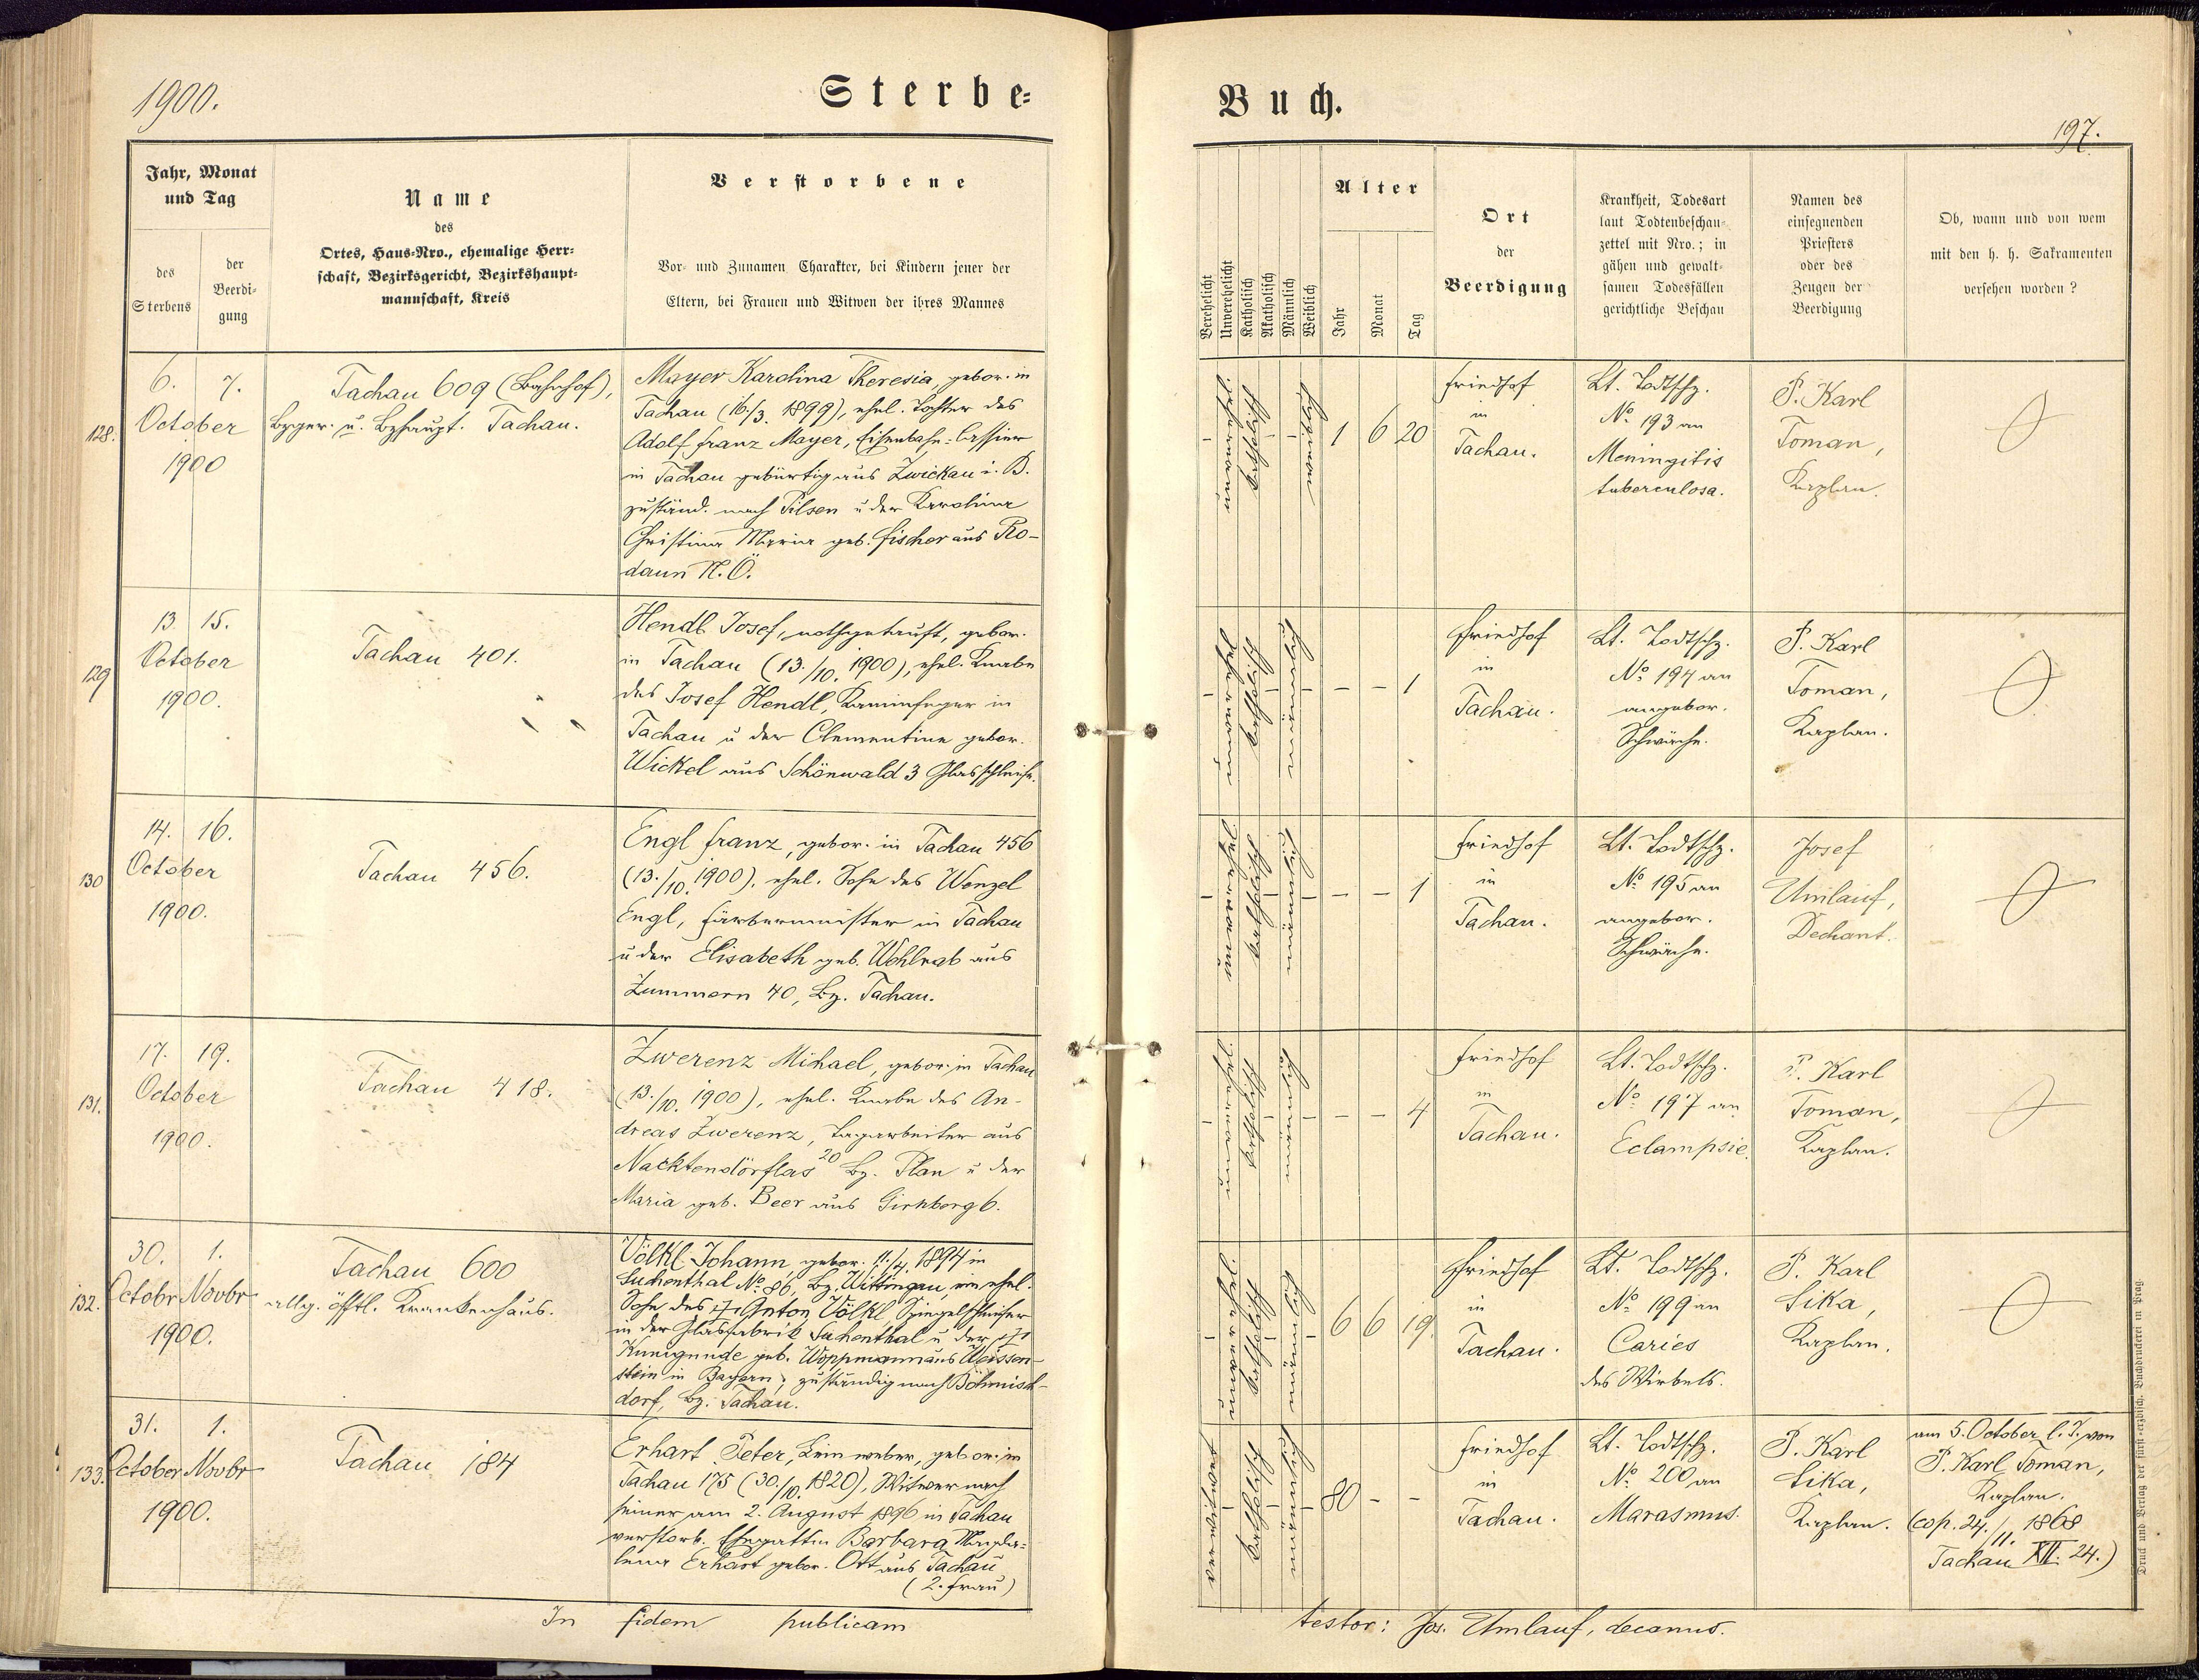 1900.
Sterbe-
Buch.
197.
Jahr, Monat
und Tag
des
Sterbens
der
Beerdi-
gung
Name
des
Ortes, Haus-Nro., ehemalige Herr-
schaft, Bezirksgericht, Bezirkshaupt-
mannschaft, Kreis
Verstorbene
Vor- und Zunamen Charakter, bei Kindern jener der
Eltern, bei Frauen und Witwen der ihres Mannes
Verehelicht
Unverehelicht
Katholisch
Akatholisch
Männlich
Weiblich
Alter
Jahr
Monat
Tag
Ort
der
Beerdigung
Krankheit, Todesart
laut Todtenbeschau-
zettel mit Nro.; in
gähen und gewalt-
samen Todesfällen
gerichtliche Beschau
Namen des
einsegnenden
Priesters
oder des
Zeugen der
Beerdigung
Ob, wann und von wem
mit den h. h. Sakramenten
versehen worden?
128.
6. 7.
October
1900
Tachau 609 (Bahnhof),
Bzger. u. Bzhaupt. Tachau.
Mayer Karolina Theresia, gebor. in
Tachau (16./3. 1899), ehel. Tochter des
Adolf Franz Mayer, Eisenbahn-Cassier
in Tachau gebürtig aus Zwickau i. B.
zuständ. nach Pilsen u der Karolina
Christina Maria geb. Fischer aus Ro-
daun N.Ö.
–
katholisch
–
–
1 6 20
Friedhof
in
Tachau.
Lt. Todtschz.
No 193 an
Meningitis
tuberculosa.
P. Karl
Toman,
Kaplan.
129
13 15.
October
1900.
Tachau 401.
Hendl Josef, nothgetauft, gebor.
in Tachau (13./10. 1900), ehel. Knabe
des Josef Hendl, Kaminfeger in
Tachau u der Clementine gebor.
Wickel aus Schönwald 3 Glasschleife.
–
katholisch
–
männlich
–
– – 1
Friedhof
in
Tachau.
Lt. Todtschz.
No 194 an
angebor.
Schwäche.
P. Karl
Toman,
Kaplan.
130
14. 16.
October
1900.
Tachau 456.
Engl Franz, gebor. in Tachau 456
(13./10. 1900), ehel. Sohn des Wenzel
Engl, Färbermeister in Tachau
u der Elisabeth geb. Wohlrab aus
Zummern 40, Bz. Tachau.
–
katholisch
–
männlich
–
– – 1
Friedhof
in
Tachau.
Lt. Todtschz.
No 195 an
angebor.
Schwäche.
Josef
Umlauf,
Dechant.
131.
17. 19.
October
1900.
Tachau 418.
Zwerenz Michael, gebor. in Tachau
(13./10. 1900), ehel. Knabe des An-
dreas Zwerenz, Tagarbeiter aus
Nacktendörflas 20 Bz. Plan u der
Maria geb. Beer aus Girnberg 6.
–
katholisch
–
männlich
–
– – 4
Friedhof
in
Tachau.
Lt. Todtschz.
No 197 an
Eclampsie.
P. Karl
Toman,
Kaplan.
132.
30. 1.
Octobr Novbr
1900.
Tachau 600
allg. öfftl. Krankenhaus.
Völkl Johann, gebor. 11./4. 1894 in
Suchenthal No 86, Bz. Wittingau, ein ehel.
Sohn des Anton Völkl, Spiegelschleifer
in der Glasfabrik Suchenthal u der
Kunigunde geb. Woppmann aus Weissen-
stein in Bayern, zuständig nach Böhmisch-
dorf, Bz. Tachau.
–
katholisch
–
männlich
–
6 6 19.
Friedhof
in
Tachau.
Lt. Todtschz.
No 199 an
Caries
des Wirbels.
P. Karl
Sika,
Kaplan.
133.
31. 1.
October Novbr
1900.
Tachau 184
Erhart Peter, Leinweber, gebor. in
Tachau 175 (30./10. 1820), Witwer nach
seiner am 2. August 1896 in Tachau
verstorb. Ehegattin Barbara Magda-
lena Erhart gebor. Ott aus Tachau
(2. Frau)
verwitwet
–
katholisch
–
männlich
–
80 – –
Friedhof
in
Tachau.
Lt. Todtschz.
No 200 an
Marasmus.
P. Karl
Sika,
Kaplan.
am 5. October l. J. von
P. Karl Toman,
Kaplan.
(cop. 24./11. 1868
Tachau XII. 24.)
In fidem publicam
testor: Jos. Umlauf, decanus.
Druck und Verlag der fürst-erzbisch. Buchdruckerei in Prag.